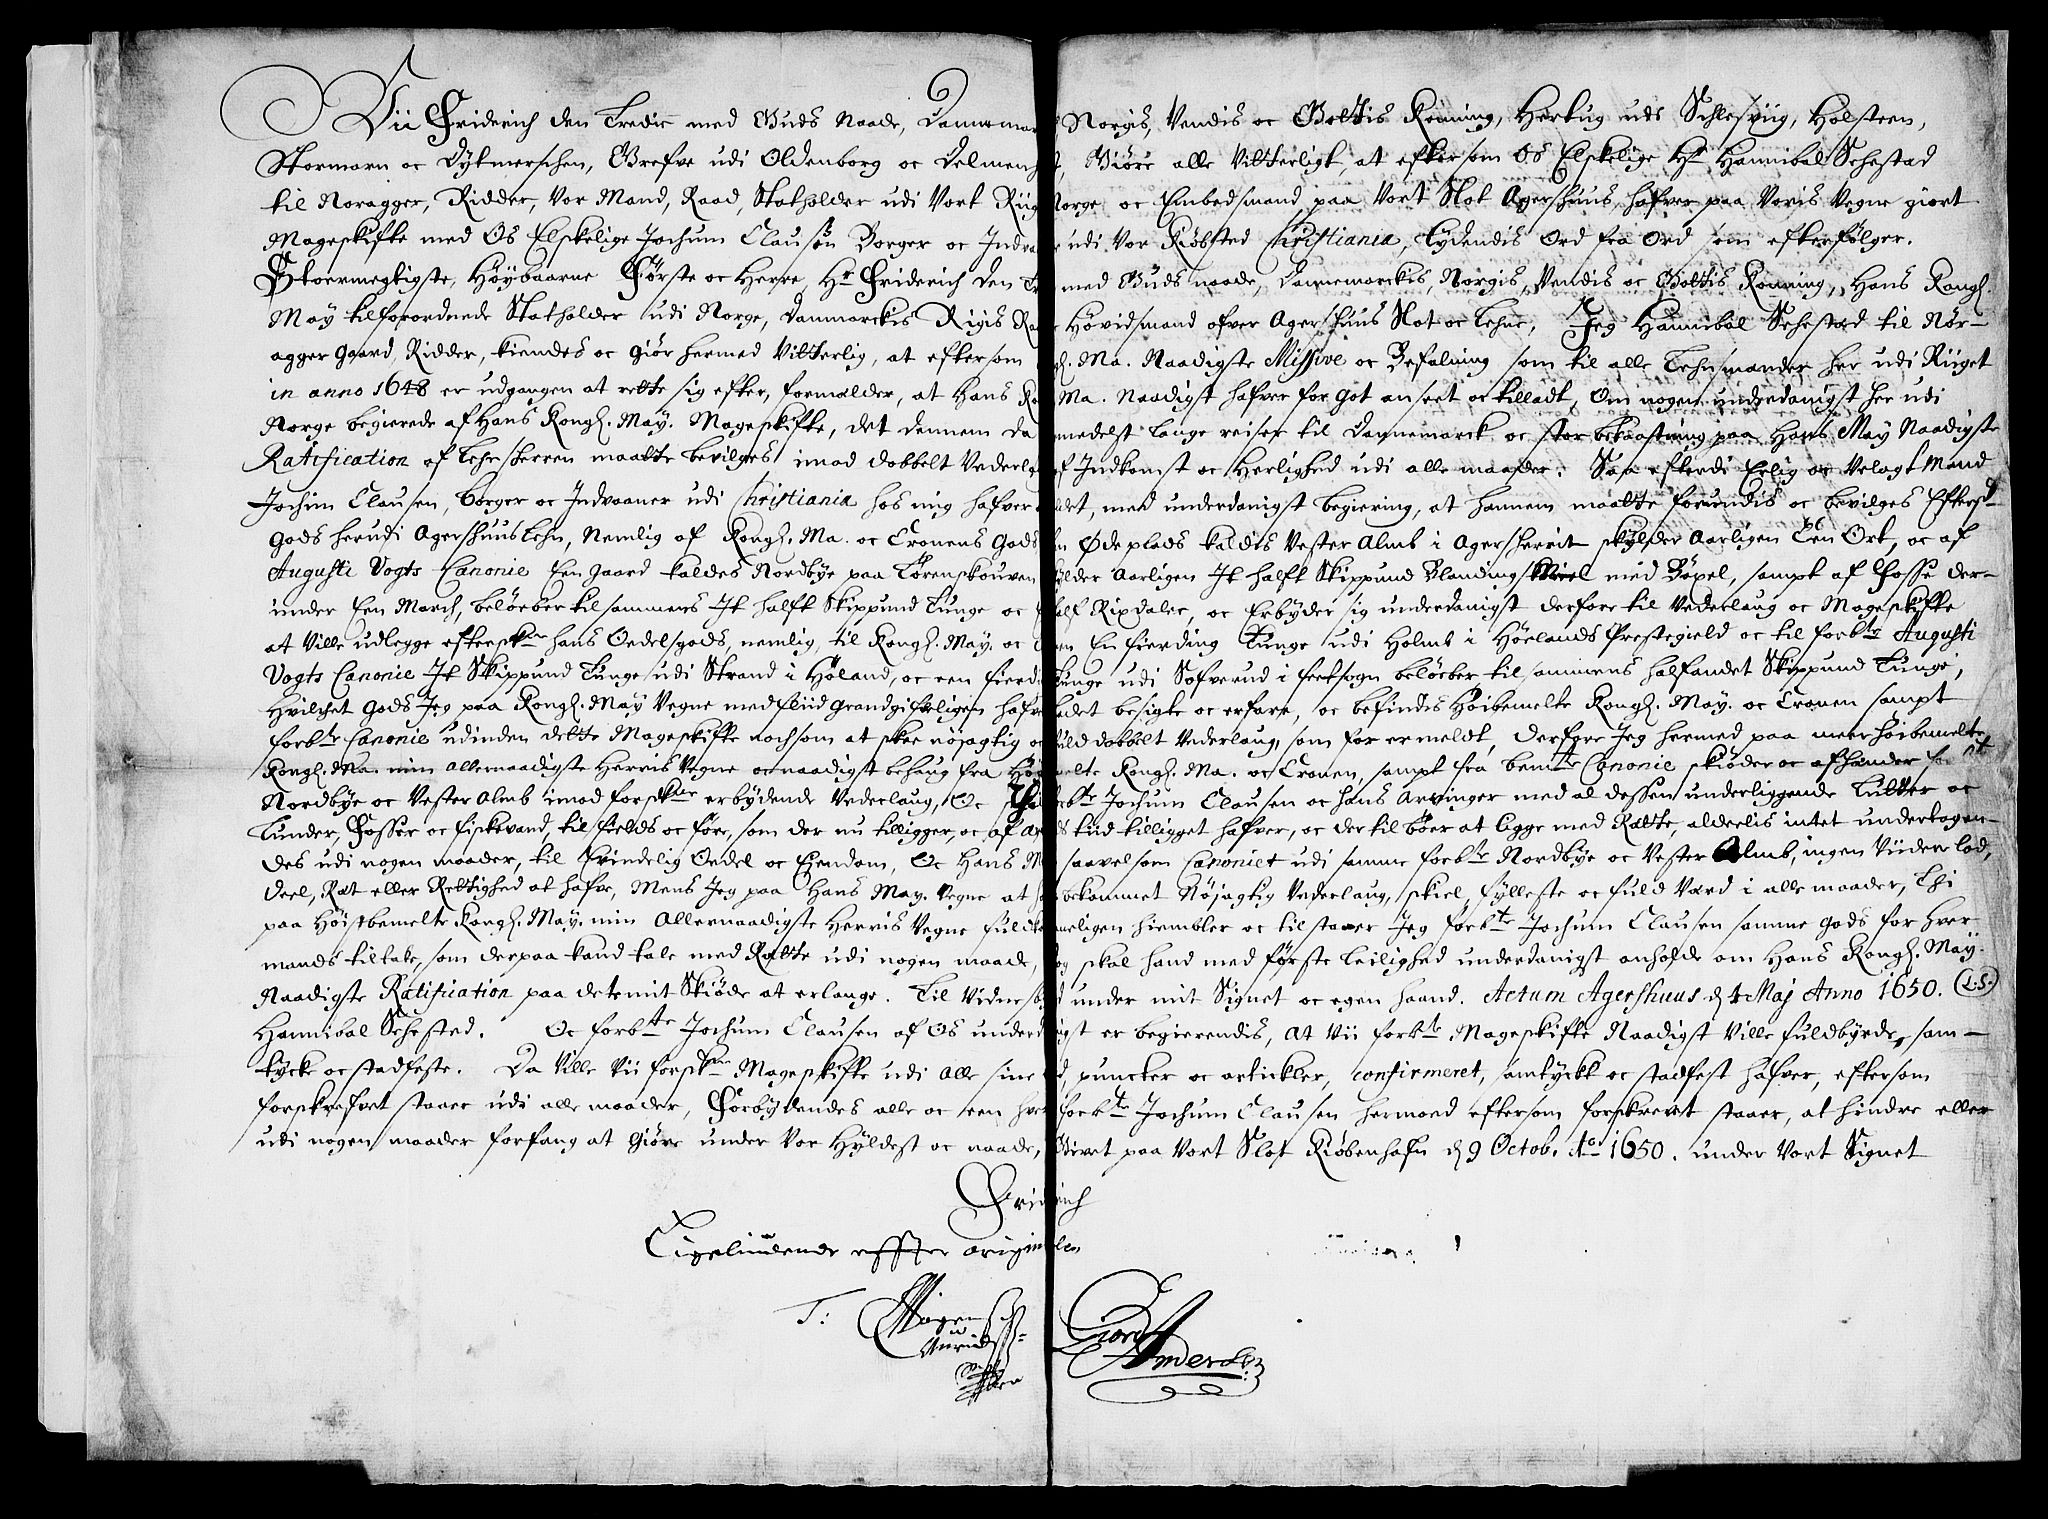 Vii Friderich den Tredie med Guds Naade, Dannemar Norgis, Vendis oc Gottis Konning, Hertug udi Schlesviig, Holsteen,
Stormarn oc Dytmerschen, Grefve udi Oldenborg oc Delmenh Giøre alle Vitterligt, at eftersom Os Elskelige Hr Hannibal Sehestad
til Noragger, Ridder, Vor Mand, Raad, Statholder udi Vort Riig Norge oc Embedsmand paa Vort Slot Agershuus, hafver paa Voris Vegne giort
Mageskifte med Os Elskelige Jochum Clausøn Borger oc Indva udi Vor Kiøbsted Christiania, Lydendis Ord fra Ord som efterfølger.
Stoermegtigste, Høybaarne Første oc Herre, Hr Friderich den Tr med Guds naade, Dannemarckis, Norgis, Vendis oc Gottis Konning, Hans Kongl.
May tilforordnede Statholder udi Norge, Danmarckis Rigis Ra Høvidsmand ofver Agershuus Slot oc Lehne, Jeg Hannibal Sehested til Nør-
agger Gaard, Ridder, kiendes oc giør hermed Vitterlig, at eftersom Ma. Naadigste Missive oc Befalning som til alle Lehnsmender her udi Riiget
in anno 1648 er udgangen at rette sig efter, formelder, at Hans Ko Ma. Naadigst hafver for got anseet oc tilladt, Om nogen underdanigst her udi
Norge begierede af Hans Kongl. May. Mageskifte, det dennem da medelst lange reiser til Dannemarck oc stor bekaastning paa Hans May Naadigste
Ratification af Lehnsherren maatte bevilges imod dobbelt Vederl Indkomst oc Herlighed udi alle maader: Saa efterdi Erlig oc Velagt Mand
Jochim Clausen, borger oc Indvaaner udi Christiania hos mig hafver det, med underdanigst begiering, at hannem maatte forundis oc bevilges Eftersk
Gods herudi Agershuus Lehn, Nemlig af Kongl. Ma. oc Cronens Gods Øde plads kaldis Vester Almb i Agersherrit skylder Aarligen Een Ort, oc af
Augusti Vogts Canonie Een Gaard kaldes Nordbye paa Tørenskouven skylder Aarligen It halft Skippund Blandings Miel med Bøxel, sampt af Fosse der-
under Een March, beløeber tilsammens It halft Skippund Tunge oc half Rixdaler, oc Erbyder sig underdanigst derfore til Vederlaug oc Mageskifte
at Ville udlegge eftersk hans Oedelsgods, nemlig, til Kongl. May. oc En fierding Tunge udi Holmb i Høelands Prestegield oc til forb Augusti
Vogts Canonie It Skippund Tunge udi Strand i Høland, oc een fierdi Tunge udi Sofverud i sogn beløeber til sammens halfandet Skippund Tunge,
Hvilchet Gods Jeg paa Kongl. May Vegne med fliid grandgifveligen hafve ladet besigte oc erfare, oc befindes Høibemelte Kongl. May. oc Cronen sampt
forb Canonie udinden dette Mageskifte nochsom at skee nøjagtig oc fuld dobbelt Vederlaug, som for er meldt, derfore Jeg hermed paa meer høibemelte
Kongl. Ma. min allernaadigste Herris Vegne oc naadigst behaug fra Høy melte Kongl. Ma. oc Cronen, sampt fra bem Canonie skiøder oc afhender for
Nordbye oc Vester Almb imod forsk erbydende Vederlaug, Oc Jochum Clausen oc hans Arvinger med al dessen underliggende Lutter oc
Lunder, Fosser oc fiskevand, til fields oc fiøre, som der nu tilligger, oc af tiid tilligget hafver, oc der til bøer at ligge med Rætte, aldeelis intet undertagen-
des udi nogen maader, til Evindelig Oedel oc Eiendom, Oc Hans saavelsom Canoniet udi samme forb Nordbye oc Vester Almb, ingen Viidere lod,
deel, Ræt eller Rettighed at hafve, Mens Jeg paa Hans May. Vegne at bekommet Nøjagtig Vederlaug, skiel, fylleste oc fuld Værd i alle maader, Thi
paa Høistbemelte Kongl. May. min Allernaadigste Herris Vegne fuldk meligen hiembler oc tilstaaer Jeg forb Jochum Clausen samme Gods for hver
mands tiltale, som derpaa kand tale med Rætte udi nogen maade, og skal hand med første leilighed underdanigst anholde om Hans Kongl. May.
Naadigste Ratification paa dette mit Skiøde at erlange. Til Vidnesb under mit Signet oc egen haand. Actum Agershuus d 4 Maj Anno 1650. L.S.
Hannibal Sehested. Oc forb Jochum Clausen af Os underd igst er begierendis, At Vii fork Mageskifte Naadigst Ville fuldbyrde, sam-
tycke oc stadfeste. Da Ville Vii forsk Mageskifte udi Alle sine puncter oc artickler, confirmeret, samtyckt oc stadfest hafver, eftersom
forskrefvet staaer udi alle maader, Forbydendes alle oc een hver fork Jochum Clausen hermoed eftersom forskrevet staaer, at hindre eller
udi nogen maader forfang at Giøre under Vor Hyldest oc naade, Givet paa Vort Slot Kiøbenhafn d 9 Octob. Ao 1650. under Vort Signet
Friderich
Ligeliudende effter originalen
T:
Andersen